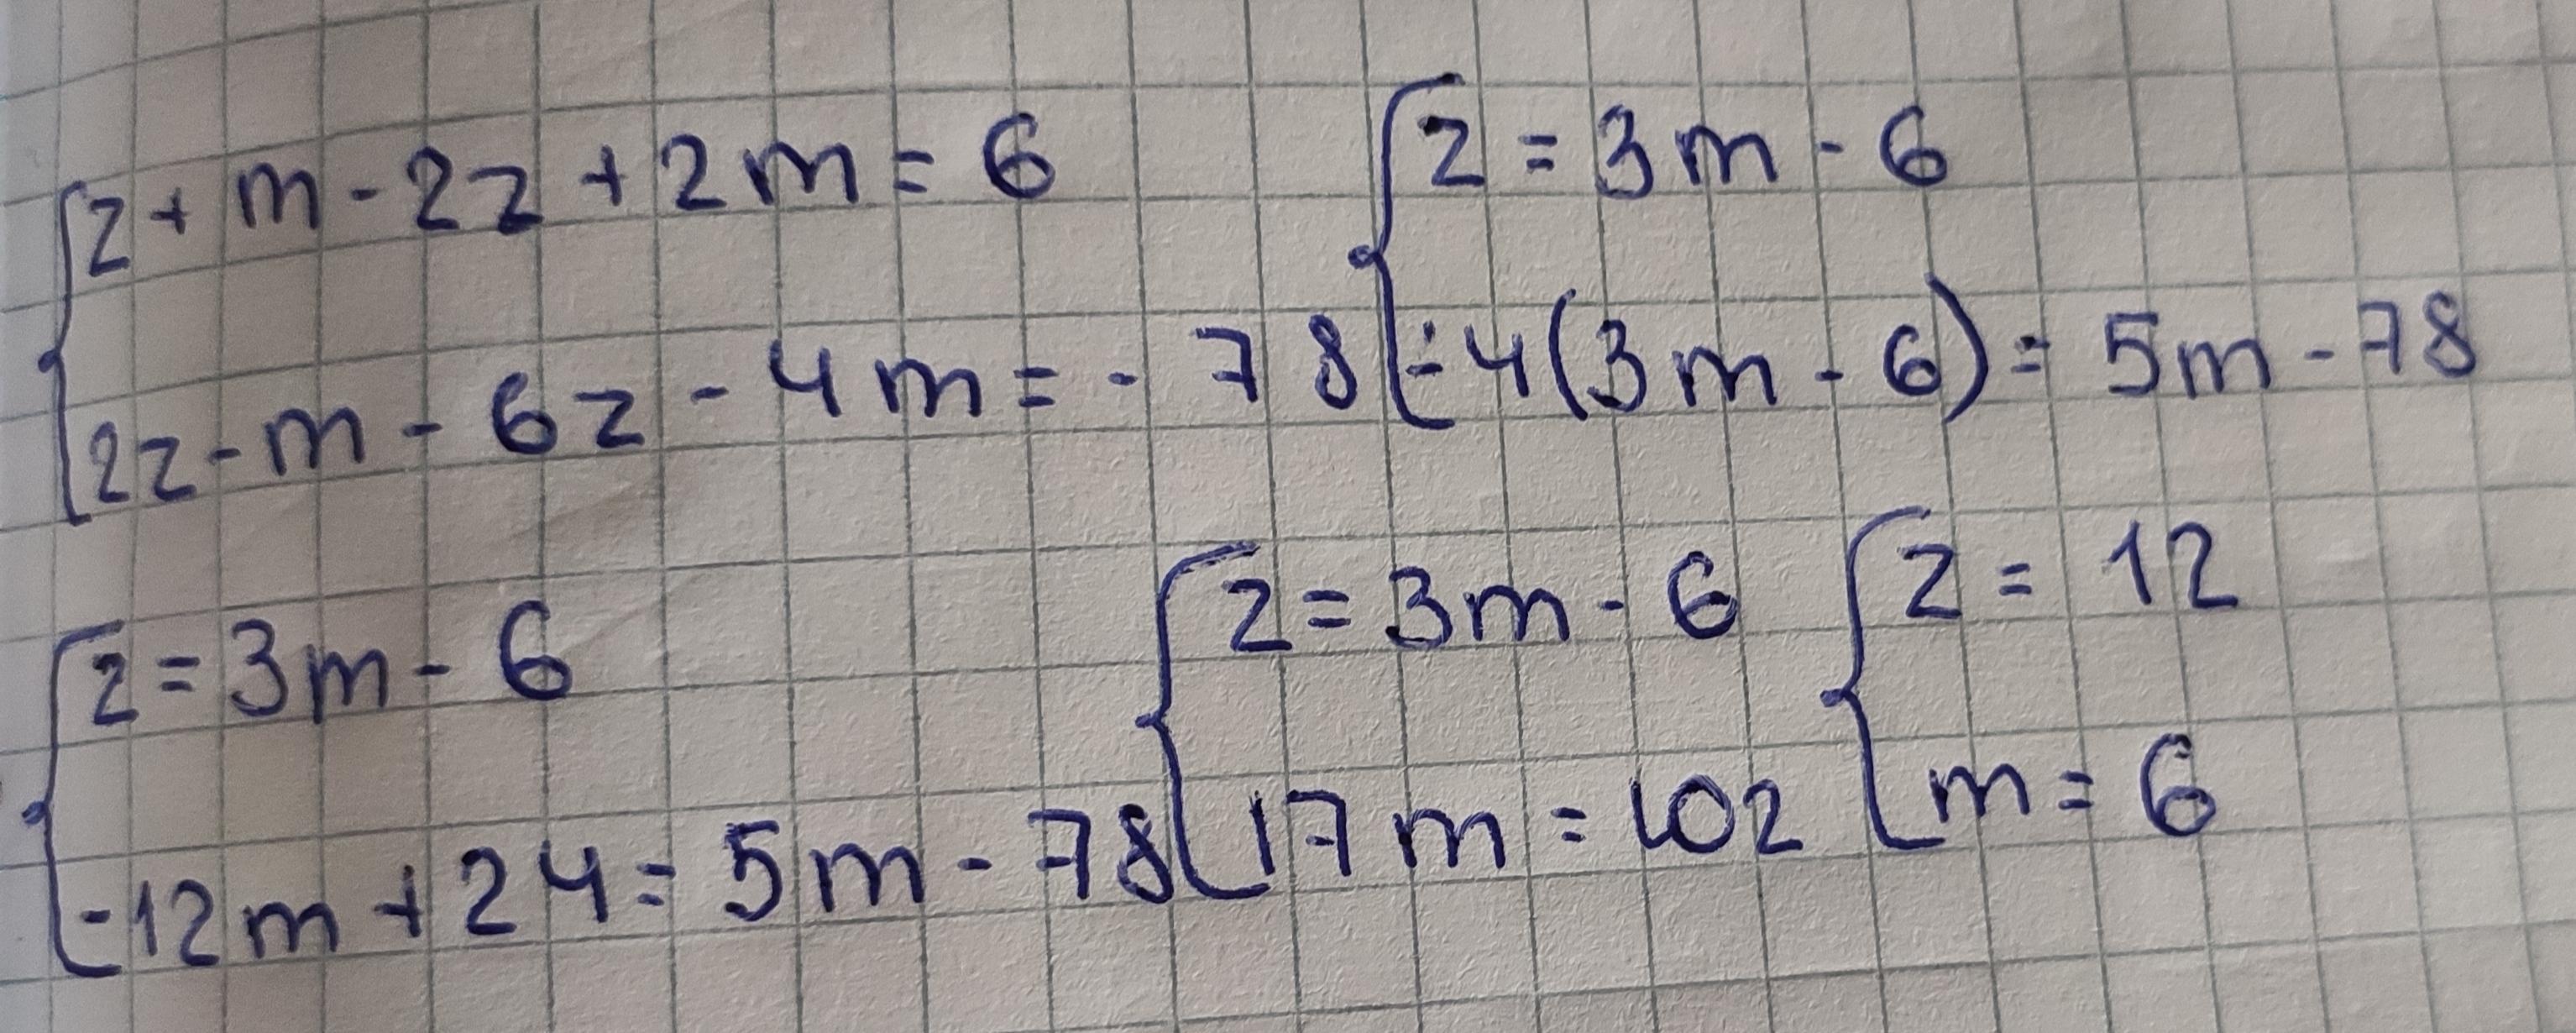 z + m - 2z + 2m = 6
2z - m - 6z - 4m = - 78
z = 3m - 6
- 4(3m - 6) = 5m - 78
z = 3m - 6
-12m + 24 = 5m - 78
z = 3m - 6
17m = 102
z = 12
m = 6